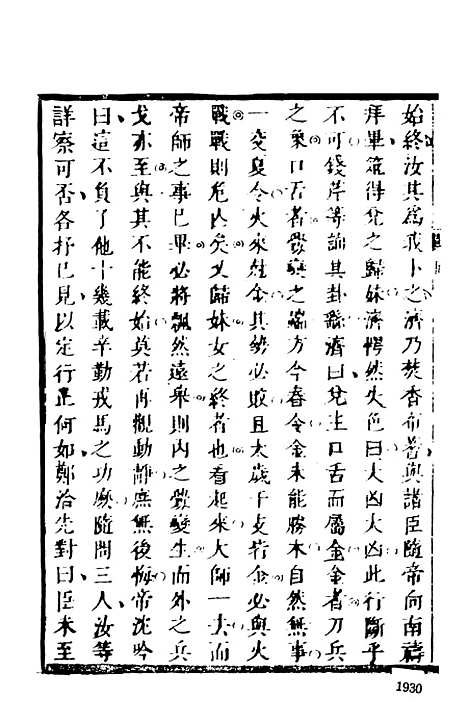 始終汝其爲我卜之濟乃焚香布蓍與諸臣隨帝向南禱
拜畢筮得兌之歸妹濟愕然失色曰大凶大凶此行斷乎
不可錢芹等詢其卦繇濟曰兌主口舌而屬金金者刀兵
之象口舌者釁孽之端方今春令金未能勝木自然無事
一交夏令火來尅金其勢必敗且太歲干支皆金必與火
戰戰則危凶矣又歸妹女之終者也看起來大師一去而
帝師之事已畢必將飄然遠舉則內之釁孽生而外之兵
戈亦至與其不能終始莫若再觀動靜庶無後悔帝沈吟
曰這不負了他十幾載辛勤戎馬之功麽隨問三人汝等
詳察可否各抒已見以定行止何如鄭洽先對曰臣未至
1930